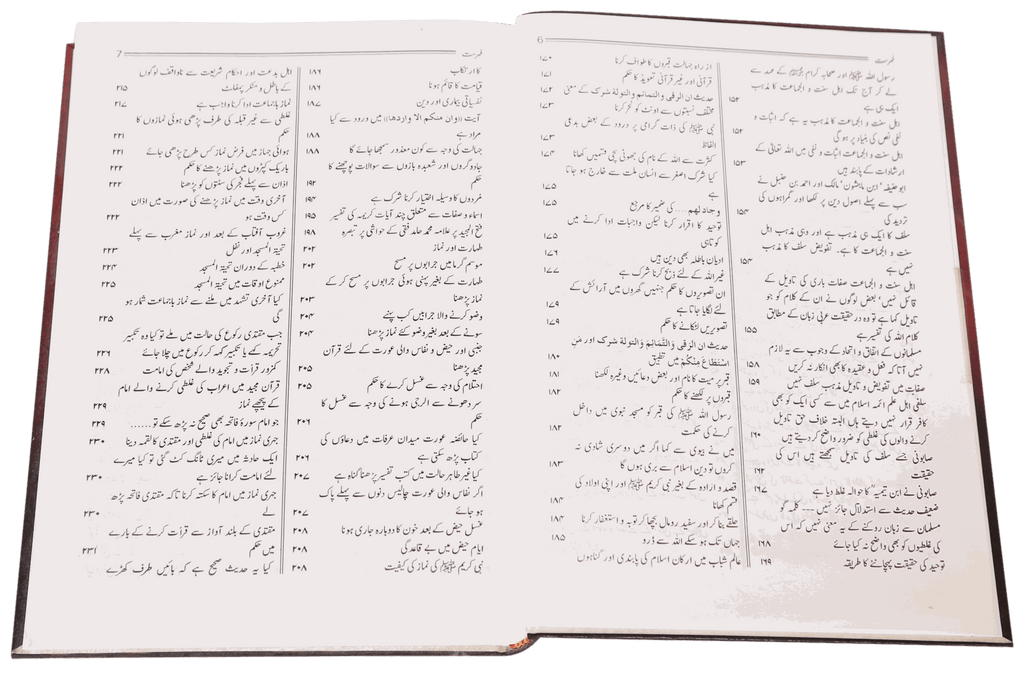 6 فہرست
رسول اللہ ﷺ اور صحابہ کرام ﷺ کے عہد سے
لے کر آج تک اہل سنت و الجماعت کا مذہب
ایک ہی ہے ۱۵۲
اہل سنت و الجماعت کا مذہب یہ ہے کہ اثبات و
نفی نص کی بنیاد پر ہو گی ۱۵۲
اہل سنت و الجماعت اثبات و نفی میں اللہ تعالیٰ کے
ارشادات کے پابند ہیں ۱۵۳
ابو حنیفہ' ابن ماجشون' مالک اور احمد بن حنبل نے
سب سے پہلے اصول دین پر لکھا اور گمراہوں کی
تردید کی ۱۵۴
سلف کا ایک ہی مذہب ہے اور وہی مذہب اہل
سنت و الجماعت کا ہے۔ تفویض سلف کا مذہب
نہیں ہے ۱۵۴
اہل سنت و الجماعت صفات باری کی تاویل کے
قائل نہیں' بعض لوگوں نے ان کے کلام کو جو
تاویل کہا ہے تو وہ در حقیقت عربی زبان کے مطابق
کلام اللہ کی تفسیر ہے ۱۵۵
مسلمانوں کے اتفاق و اتحاد کے وجوب سے یہ لازم
نہیں آتا کہ غلط عقیدہ کا بھی انکار نہ کریں ۱۵۸
صفات میں تفویض و تاویل مذہب سلف نہیں ۱۵۹
سلفی اہل علم ائمہ اسلام میں سے کسی ایک کو بھی
کافر قرار نہیں دیتے ہاں البتہ خلاف حق تاویل
کرنے والوں کی غلطی کو ضرور واضح کر دیتے ہیں ۱۶۰
صابونی جسے سلف کی تاویل سمجھتے ہیں اس کی
حقیقت ۱۶۲
صابونی نے ابن تیمیہ کا حوالہ غلط دیا ہے ۱۶۷
ضعیف حدیث سے استدلال جائز نہیں --- کلمہ گو
مسلمان سے زبان روکنے کے یہ معنی نہیں کہ اس
کی غلطیوں کو بھی واضح نہ کیا جائے ۱۶۸
توحید کی حقیقت پہچاننے کا طریقہ ۱۶۹
از راہ جہالت قبروں کا طواف کرنا ۱۷۰
قرآنی اور غیر قرآنی تعویذ کا حکم ۱۷۱
حدیث ان الرقی والتمائم والتولۃ شرک کے معنی ۱۷۲
مختلف نسبتوں سے اونٹ کو نحر کرنا ۱۷۳
نبی ﷺ کی ذات گرامی پر درود کے بعض بدعی
الفاظ ۱۷۳
کثرت سے اللہ کے نام کی جھوٹی سچی قسمیں کھانا ۱۷۴
کیا شرک اصغر سے انسان ملت سے خارج ہو جاتا
ہے ۱۷۵
وجادلہم.... کی ضمیر کا مرجع ۱۷۵
توحید کا اقرار کرنا لیکن واجبات ادا کرنے میں
کوتاہی ۱۷۵
ادیان باطلہ بھی دین ہیں ۱۷۶
غیر اللہ کے لئے ذبح کرنا شرک ہے ۱۷۷
ان تصویروں کا حکم جنہیں گھروں میں آرائش کے
لئے لگایا جاتا ہے ۱۷۹
تصویریں لٹکانے کا حکم ۱۷۹
حدیث ان الرقی والتمائم والتولۃ شرک اور من
استطاع منکم میں تطبیق ۱۸۰
قبر پر میت کا نام اور بعض دعائیں وغیرہ لکھنا ۱۸۱
قبروں پر لکھنے کا حکم ۱۸۲
رسول اللہ ﷺ کی قبر کو مسجد نبوی میں داخل
کرنے کی حکمت ۱۸۲
میں نے بیوی سے کہا اگر میں دوسری شادی نہ
کروں تو دین اسلام سے بری ہوں گا ۱۸۳
قصد و ارادہ کے بغیر نبی کریم ﷺ اور اپنی اولاد کی
قسم کھانا ۱۸۴
حلقے بنا کر اور سفید رومال بچھا کر توبہ و استغفار کرنا ۱۸۴
جہاں تک ہو سکے اللہ سے ڈرو ۱۸۵
عالم شباب میں ارکان اسلام کی پابندی اور گناہوں
7 فہرست
کا ارتکاب ۱۸۶
قیامت کا قائم ہونا ۱۸۶
نفسیاتی بیماری اور دین ۱۸۷
آیت ((وان منکم الا واردھا)) میں ورود سے کیا
مراد ہے ۱۸۸
جہالت کی وجہ سے کون معذور سمجھا جائے گا ۱۸۸
جادوگروں اور شعبدہ بازوں سے سوالات پوچھنے کا
حکم ۱۹۲
مُردوں کا وسیلہ اختیار کرنا شرک ہے ۱۹۴
اسماء و صفات سے متعلق چند آیات کریمہ کی تفسیر ۱۹۵
فتح المجید پر علامہ محمد حامد فقی کے حواشی پر تبصرہ ۱۹۸
طہارت اور نماز ۲۰۲
موسم گرما میں جرابوں پر مسح ۲۰۲
طہارت کے بغیر پہنی ہوئی جرابوں پر مسح کر کے
نماز پڑھنا ۲۰۳
وضو کرنے والا جرابیں کب پہنے ۲۰۴
سونے کے بعد بغیر وضو کئے نماز پڑھنا ۲۰۴
جنبی اور حیض و نفاس والی عورت کے لئے قرآن
مجید پڑھنا ۲۰۵
احتلام کی وجہ سے غسل کرنے کا حکم ۲۰۵
سر دھونے سے الرجی ہونے کی وجہ سے غسل کا
حکم ۲۰۶
کیا حائضہ عورت میدان عرفات میں دعاؤں کی
کتاب پڑھ سکتی ہے ۲۰۶
کیا غیر طاہر حالت میں کتب تفسیر پڑھنا گناہ ہے ۲۰۷
اگر نفاس والی عورت چالیس دنوں سے پہلے پاک
ہو جائے ۲۰۷
غسل حیض کے بعد خون کا دوبارہ جاری ہونا ۲۰۸
ایام حیض میں بے قاعدگی ۲۰۸
نبی کریم ﷺ کی نماز کی کیفیت ۲۰۸
اہل بدعت اور احکام شریعت سے ناواقف لوگوں
کے باطل و منکر پمفلٹ ۲۱۵
نماز باجماعت ادا کرنا واجب ہے ۲۱۷
غلطی سے غیر قبلہ کی طرف پڑھی ہوئی نمازوں کا
حکم ۲۲۱
ہوائی جہاز میں فرض نماز کس طرح پڑھی جائے ۲۲۱
باریک کپڑوں میں نماز پڑھنے کا حکم ۲۲۲
اذان سے پہلے فجر کی سنتوں کو پڑھنا ۲۲۲
آخری وقت میں نماز پڑھنے کی صورت میں اذان
کس وقت ہو ۲۲۲
غروب آفتاب کے بعد اور نماز مغرب سے پہلے
تحیۃ المسجد اور نفل ۲۲۳
خطبہ کے دوران تحیۃ المسجد ۲۲۴
ممنوع اوقات میں تحیۃ المسجد ۲۲۵
کیا آخری تشہد میں ملنے سے نماز باجماعت شمار ہو
گی ۲۲۵
جب مقتدی رکوع کی حالت میں ملے تو کیا وہ تکبیر
تحریمہ کہے یا تکبیر کہہ کر رکوع میں چلا جائے ۲۲۶
کمزور قرأت و تجوید والے شخص کی امامت ۲۲۸
قرآن مجید میں اعراب کی غلطی کرنے والے امام
کے پیچھے نماز ۲۲۹
جو امام سورۂ فاتحہ بھی صحیح نہ پڑھ سکے تو...... ۲۲۹
جہری نماز میں امام کی غلطی اور مقتدی کا لقمہ دینا ۲۳۰
ایک حادثہ میں میری ٹانگ کٹ گئی تو کیا میرے
لئے امامت کرانا جائز ہے ۲۳۰
جہری نماز میں امام کا سکتہ کرنا تاکہ مقتدی فاتحہ پڑھ
لے ۲۳۰
مقتدی کے بلند آواز سے قرأت کرنے کے بارے
میں حکم ۲۳۱
کیا یہ حدیث صحیح ہے کہ بائیں طرف کھڑے